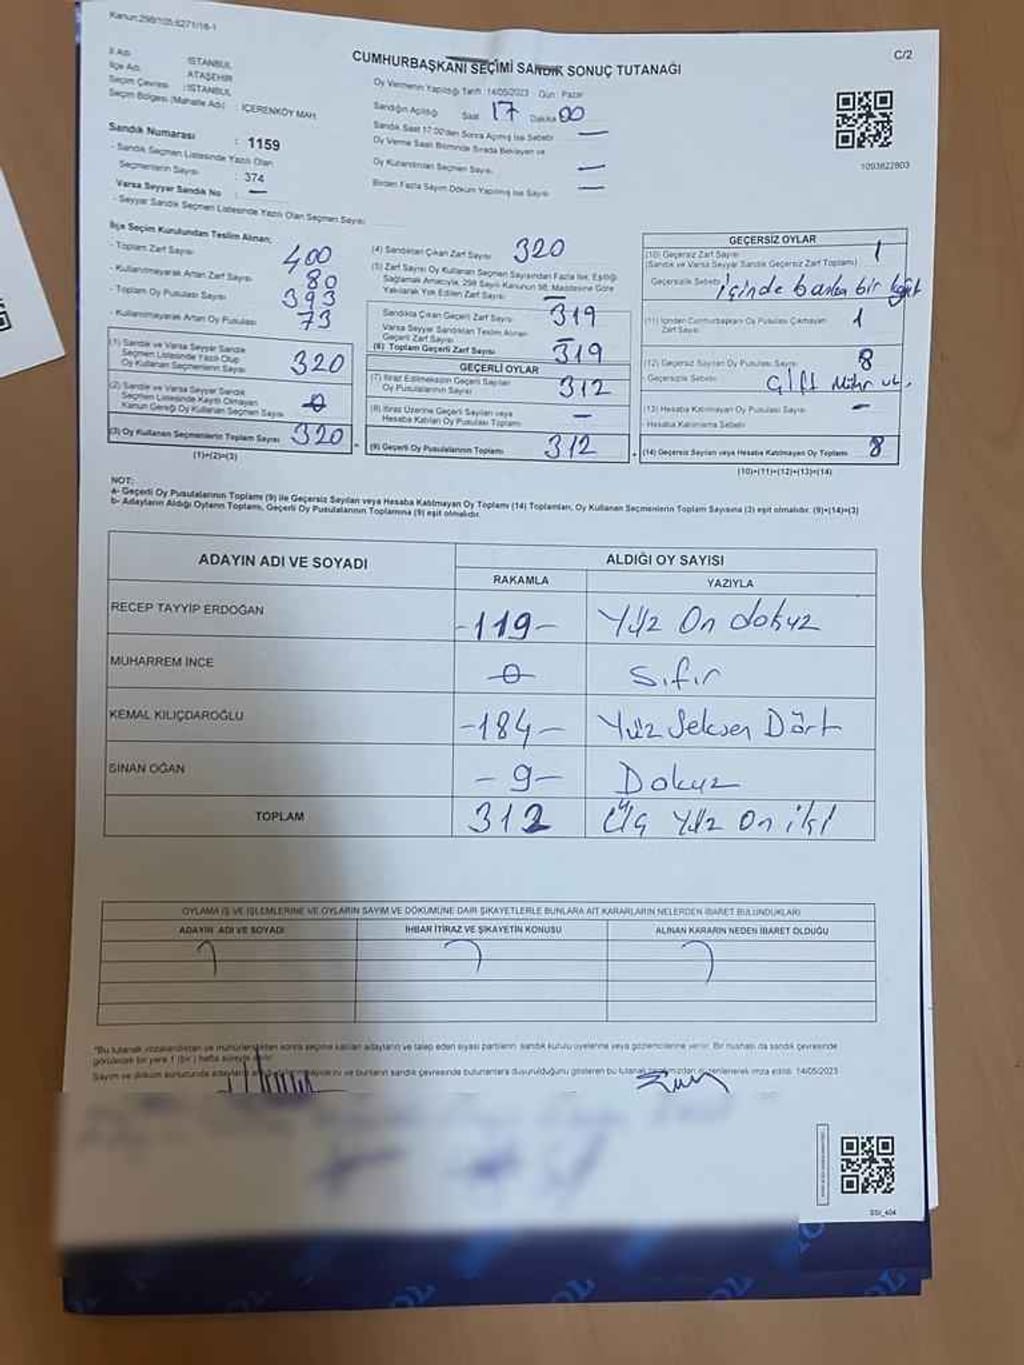 Kanun:298/105;6271/16-1
C/2
CUMHURBAŞKANI SEÇİMİ SANDIK SONUÇ TUTANAĞI
İl Adı : İSTANBUL
İlçe Adı : ATAŞEHİR
Seçim Çevresi : İSTANBUL
Seçim Bölgesi (Mahalle Adı) : İÇERENKÖY MAH.
Sandık Numarası : 1159
- Sandık Seçmen Listesinde Yazılı Olan
Seçmenlerin Sayısı : 374
Varsa Seyyar Sandık No : —
- Seyyar Sandık Seçmen Listesinde Yazılı Olan Seçmen Sayısı
Oy Vermenin Yapıldığı Tarih : 14/05/2023 Gün : Pazar
Sandığın Açıldığı Saat 17 Dakika 00
Sandık Saat 17.00'den Sonra Açılmış İse Sebebi —
Oy Verme Saati Bitiminde Sırada Bekleyen ve
Oy Kullandırılan Seçmen Sayısı —
Birden Fazla Sayım Döküm Yapılmış İse Sayısı —
1093822803
İlçe Seçim Kurulundan Teslim Alınan;
- Toplam Zarf Sayısı 400
- Kullanılmayarak Artan Zarf Sayısı 80
- Toplam Oy Pusulası Sayısı 393
- Kullanılmayarak Artan Oy Pusulası 73
(1) Sandık ve Varsa Seyyar Sandık
Seçmen Listesinde Yazılı Olup
Oy Kullanan Seçmenlerin Sayısı 320
(2) Sandık ve Varsa Seyyar Sandık
Seçmen Listesinde Kayıtlı Olmayan
Kanun Gereği Oy Kullanan Seçmen Sayısı 0
(3) Oy Kullanan Seçmenlerin Toplam Sayısı 320
(1)+(2)=(3)
(4) Sandıktan Çıkan Zarf Sayısı 320
(5) Zarf Sayısı Oy Kullanan Seçmen Sayısından Fazla İse, Eşitliği
Sağlamak Amacıyla, 298 Sayılı Kanunun 98. Maddesine Göre
Yakılarak Yok Edilen Zarf Sayısı —
Sandıkta Çıkan Geçerli Zarf Sayısı 319
Varsa Seyyar Sandıktan Teslim Alınan
Geçerli Zarf Sayısı —
(6) Toplam Geçerli Zarf Sayısı 319
GEÇERLİ OYLAR
(7) İtiraz Edilmeksizin Geçerli Sayılan
Oy Pusulalarının Sayısı 312
(8) İtiraz Üzerine Geçerli Sayılan veya
Hesaba Katılan Oy Pusulaları Toplamı —
(9) Geçerli Oy Pusulalarının Toplamı 312
GEÇERSİZ OYLAR
(10) Geçersiz Zarf Sayısı 1
(Sandık ve Varsa Seyyar Sandık Geçersiz Zarf Toplamı)
- Geçersizlik Sebebi içinde başka bir kağıt
(11) İçinden Cumhurbaşkanı Oy Pusulası Çıkmayan
Zarf Sayısı 1
(12) Geçersiz Sayılan Oy Pusulası Sayısı 8
- Geçersizlik Sebebi Çift Mühr
(13) Hesaba Katılmayan Oy Pusulası Sayısı —
- Hesaba Katılmama Sebebi
(14) Geçersiz Sayılan veya Hesaba Katılmayan Oy Toplamı 8
(10)+(11)+(12)+(13)=(14)
NOT:
a- Geçerli Oy Pusulalarının Toplamı (9) ile Geçersiz Sayılan veya Hesaba Katılmayan Oy Toplamı (14) Toplamları, Oy Kullanan Seçmenlerin Toplam Sayısına (3) eşit olmalıdır. (9)+(14)=(3)
b- Adayların Aldığı Oyların Toplamı, Geçerli Oy Pusulalarının Toplamına (9) eşit olmalıdır.
ADAYIN ADI VE SOYADI ALDIĞI OY SAYISI
RAKAMLA YAZIYLA
RECEP TAYYİP ERDOĞAN -119- Yüz On dokuz
MUHARREM İNCE 0 Sıfır
KEMAL KILIÇDAROĞLU -184- Yüz Seksen Dört
SİNAN OĞAN -9- Dokuz
TOPLAM 312 Üç Yüz On iki
OYLAMA İŞ VE İŞLEMLERİNE VE OYLARIN SAYIM VE DÖKÜMÜNE DAİR ŞİKAYETLERLE BUNLARA AİT KARARLARIN NELERDEN İBARET BULUNDUKLARI
ADAYIN ADI VE SOYADI İHBAR İTİRAZ VE ŞİKAYETİN KONUSU ALINAN KARARIN NEDEN İBARET OLDUĞU
*Bu tutanak imzalandıktan ve mühürlendikten sonra seçime katılan adayların ve talep eden siyasi partilerin sandık kurulu üyelerine veya gözlemcilerine verilir. Bir nüshası da sandık çevresinde
görülecek bir yere 1 (bir) hafta süreyle asılır.
Sayım ve döküm sonucunda adayların
ve bunların sandık çevresinde bulunanlara duyurulduğunu gösteren bu tutanak
düzenlenerek imza edildi. 14/05/2023
SSI_404